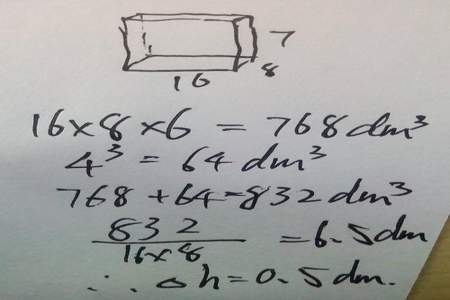 7
8
16
16×8×6 = 768dm³
4³ = 64dm³
768+64=832dm³
832
16×8
=6.5dm
∴ △h=0.5dm.